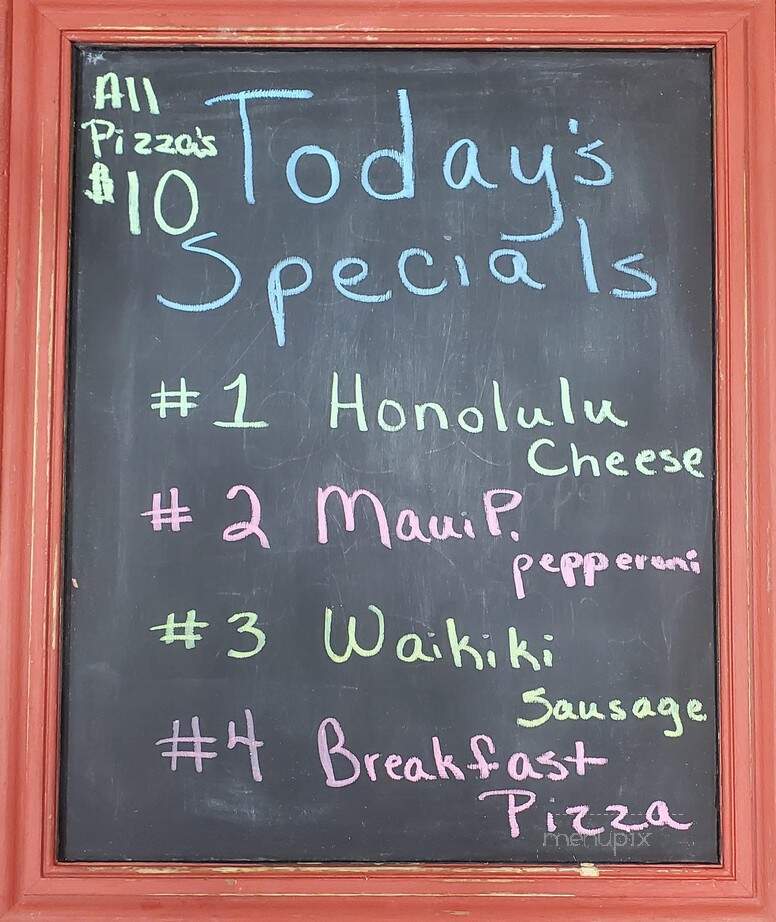 All
Pizza's
$10
Today's
Specials
#1 Honolulu
Cheese
#2 Maui P.
pepperoni
#3 Waikiki
Sausage
#4 Breakfast
Pizza
menupix